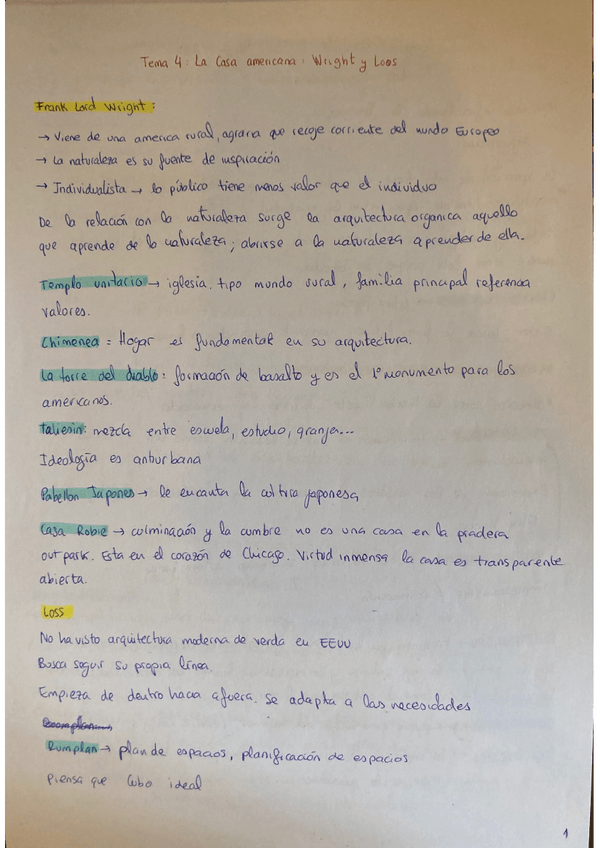 Tema 4: La Casa americana: Wright y Loos
Frank Lord Wright:
→ Viene de una america rural, agraria que recoje corriente del mundo Europeo
→ La naturaleza es su fuente de inspiración
→ Individualista → lo público tiene menos valor que el individuo
De la relación con la naturaleza surge la arquitectura organica aquello
que aprende de la naturaleza; abrirse a la naturaleza aprender de ella.
Templo unitario → iglesia, tipo mundo rural, familia principal referencia
valores.
Chimenea = Hogar es fundamental en su arquitectura.
La torre del diablo: formación de basalto y es el 1º monumento para los
americanos.
Taliesin: mezcla entre escuela, estudio, granja...
Ideología es antiurbana
Pabellon Japones → le encanta la cultura japonesa
Casa Robie → culminación y la cumbre no es una casa en la pradera
out park. Esta en el corazón de Chicago. Virtud inmensa la casa es transparente
abierta.
Loss
No ha visto arquitectura moderna de verda en EEUU
Busca seguir su propia línea.
Empieza de dentro hacia afuera. Se adapta a las necesidades
Rumplan → plan de espacios, planificación de espacios
Piensa que Cubo ideal
1